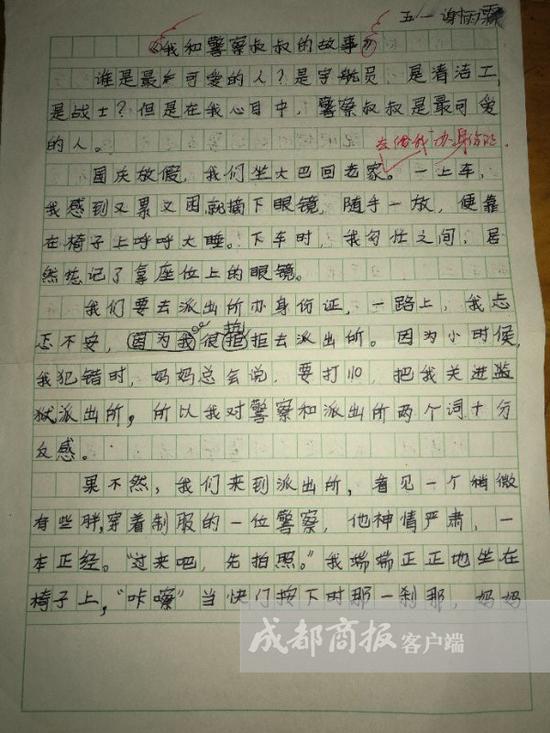 五一谢雨霖
《我和警察叔叔的故事》
谁是最可爱的人？是宇航员 是清洁工
是战士？但是在我心目中，警察叔叔是最可爱
的人。
去给我办身份证.
国庆放假，我们坐大巴回老家。一上车，
我感到又累又困就摘下眼镜，随手一放，便靠
在椅子上呼呼大睡。下车时，我匆忙之间，居
然忘记了拿座位上的眼镜。
我们要去派出所办身份证，一路上，我忐
忑不安，因为我很抗拒去派出所。因为小时候，
我犯错时，妈妈总会说，要打110，把我关进监
狱派出所，所以我对警察和派出所两个词十分
反感。
果不然，我们来到派出所，看见一个稍微
有些胖，穿着制服的一位警察，他神情严肃，一
本正经。“过来吧，先拍照。”我端端正正地坐在
椅子上，“咔嚓”当快门按下时那一刹那，妈妈
成都商报客户端